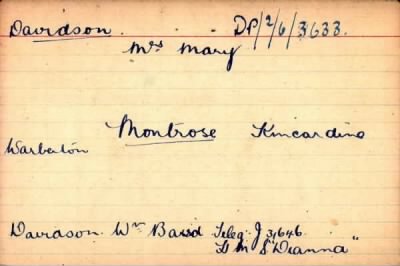 Davidson. DP/2/6/3633.
Mrs Mary
Montrose Kincardine
Warberton
Davidson. Wm Baird Teleg. J 31646
H M S "Deanna"